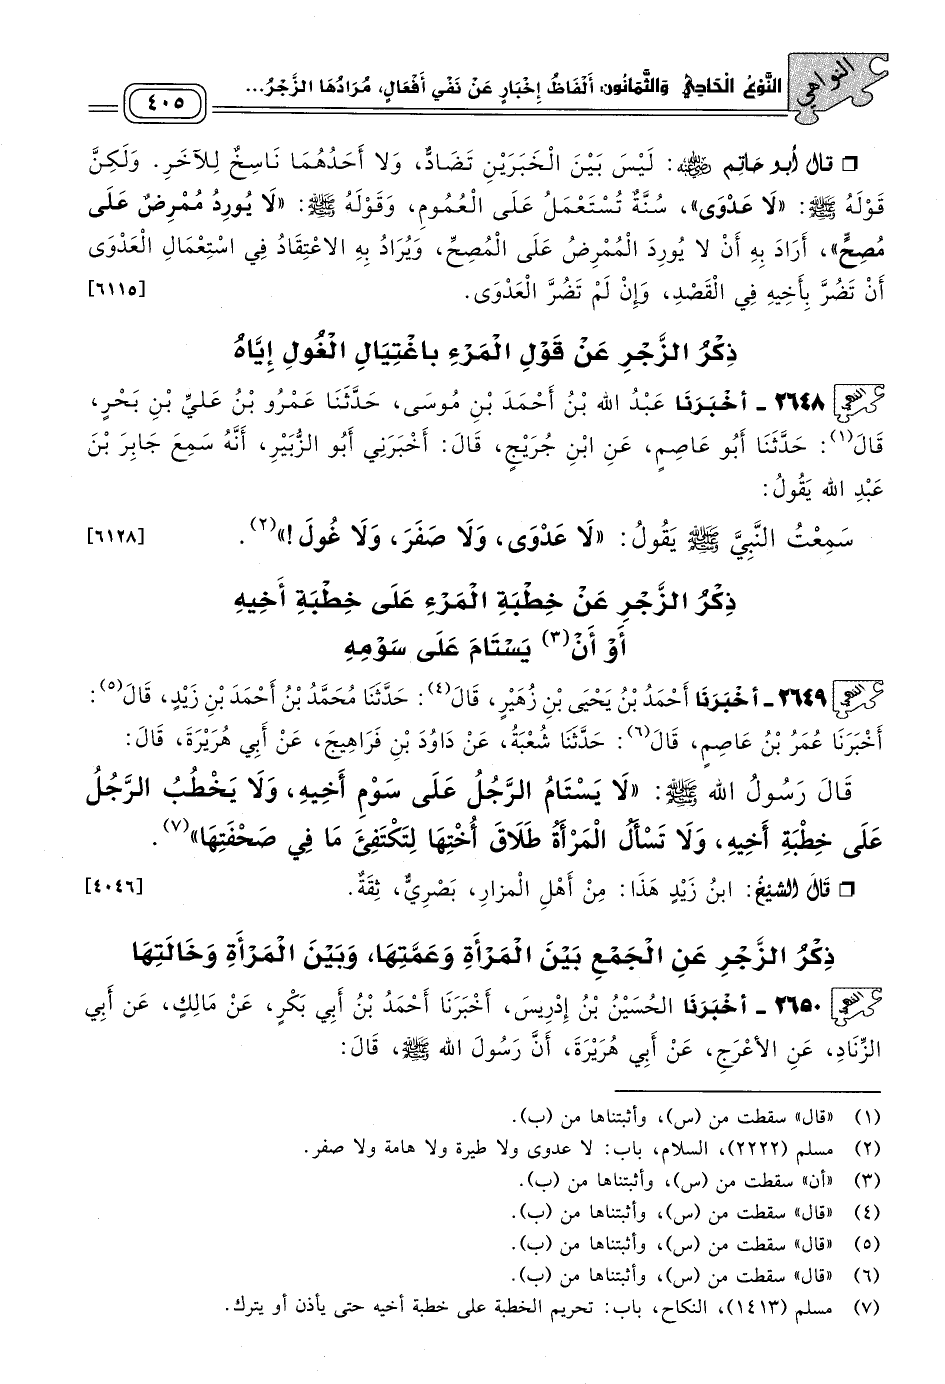 النواهي
النَّوْعُ الْحَادِي وَالثَّمَانُون: أَلْفَاظُ إِخْبَارٍ عَنْ نَفْيِ أَفْعَالٍ، مُرَادُهَا الزَّجْرُ...
٤٠٥
❒ قال أبو حاتم ﵁: لَيْسَ بَيْنَ الْخَبَرَيْنِ تَضَادٌّ، وَلَا أَحَدُهُمَا نَاسِخٌ لِلآخَرِ. وَلَكِنَّ
قَوْلَهُ ﷺ: «لَا عَدْوَى»، سُنَّةٌ تُسْتَعْمَلُ عَلَى الْعُمُومِ، وَقَوْلَهُ ﷺ: «لَا يُورِدُ مُمْرِضٌ عَلَى
مُصِحٍّ»، أَرَادَ بِهِ أَنْ لا يُورِدَ الْمُمْرِضُ عَلَى الْمُصِحِّ، وَيُرَادُ بِهِ الاعْتِقَادُ فِي اسْتِعْمَالِ الْعَدْوَى
أَنْ تَضُرَّ بِأَخِيهِ فِي الْقَصْدِ، وَإِنْ لَمْ تَضُرَّ الْعَدْوَى. [٦١١٥]
ذِكْرُ الزَّجْرِ عَنْ قَوْلِ الْمَرْءِ بِاغْتِيَالِ الْغُولِ إِيَّاهُ
٢٦٤٨ - أَخْبَرَنَا عَبْدُ اللهِ بْنُ أَحْمَدَ بْنِ مُوسَى، حَدَّثَنَا عَمْرُو بْنُ عَلِيِّ بْنِ بَحْرٍ،
قَالَ(١): حَدَّثَنَا أَبُو عَاصِمٍ، عَنِ ابْنِ جُرَيْجٍ، قَالَ: أَخْبَرَنِي أَبُو الزُّبَيْرِ، أَنَّهُ سَمِعَ جَابِرَ بْنَ
عَبْدِ اللهِ يَقُولُ:
سَمِعْتُ النَّبِيَّ ﷺ يَقُولُ: «لَا عَدْوَى، وَلَا صَفَرَ، وَلَا غُولَ!»(٢). [٦١٢٨]
ذِكْرُ الزَّجْرِ عَنْ خِطْبَةِ الْمَرْءِ عَلَى خِطْبَةِ أَخِيهِ
أَوْ أَنْ(٣) يَسْتَامَ عَلَى سَوْمِهِ
٢٦٤٩ - أَخْبَرَنَا أَحْمَدُ بْنُ يَحْيَى بْنِ زُهَيْرٍ، قَالَ(٤): حَدَّثَنَا مُحَمَّدُ بْنُ أَحْمَدَ بْنِ زَيْدٍ، قَالَ(٥):
أَخْبَرَنَا عُمَرُ بْنُ عَاصِمٍ، قَالَ(٦): حَدَّثَنَا شُعْبَةُ، عَنْ دَاوُدَ بْنِ فَرَاهِيجَ، عَنْ أَبِي هُرَيْرَةَ، قَالَ:
قَالَ رَسُولُ اللهِ ﷺ: «لَا يَسْتَامُ الرَّجُلُ عَلَى سَوْمِ أَخِيهِ، وَلَا يَخْطُبُ الرَّجُلُ
عَلَى خِطْبَةِ أَخِيهِ، وَلَا تَسْأَلُ الْمَرْأَةُ طَلَاقَ أُخْتِهَا لِتَكْتَفِئَ مَا فِي صَحْفَتِهَا»(٧).
❒ قَالَ الشَّيْخُ: ابنُ زَيْدٍ هَذَا: مِنْ أَهْلِ الْمزارِ، بَصْرِيٌّ، ثِقَةٌ. [٤٠٤٦]
ذِكْرُ الزَّجْرِ عَنِ الْجَمْعِ بَيْنَ الْمَرْأَةِ وَعَمَّتِهَا، وَبَيْنَ الْمَرْأَةِ وَخَالَتِهَا
٢٦٥٠ - أَخْبَرَنَا الحُسَيْنُ بْنُ إِدْرِيسَ، أَخْبَرَنَا أَحْمَدُ بْنُ أَبِي بَكْرٍ، عَنْ مَالِكٍ، عَن أَبِي
الزِّنَادِ، عَنِ الأَعْرَجِ، عَنْ أَبِي هُرَيْرَةَ، أَنَّ رَسُولَ اللهِ ﷺ، قَالَ:
(١) «قال» سقطت من (س)، وأثبتناها من (ب).
(٢) مسلم (٢٢٢٢)، السلام، باب: لا عدوى ولا طيرة ولا هامة ولا صفر.
(٣) «أن» سقطت من (س)، وأثبتناها من (ب).
(٤) «قال» سقطت من (س)، وأثبتناها من (ب).
(٥) «قال» سقطت من (س)، وأثبتناها من (ب).
(٦) «قال» سقطت من (س)، وأثبتناها من (ب).
(٧) مسلم (١٤١٣)، النكاح، باب: تحريم الخطبة على خطبة أخيه حتى يأذن أو يترك.